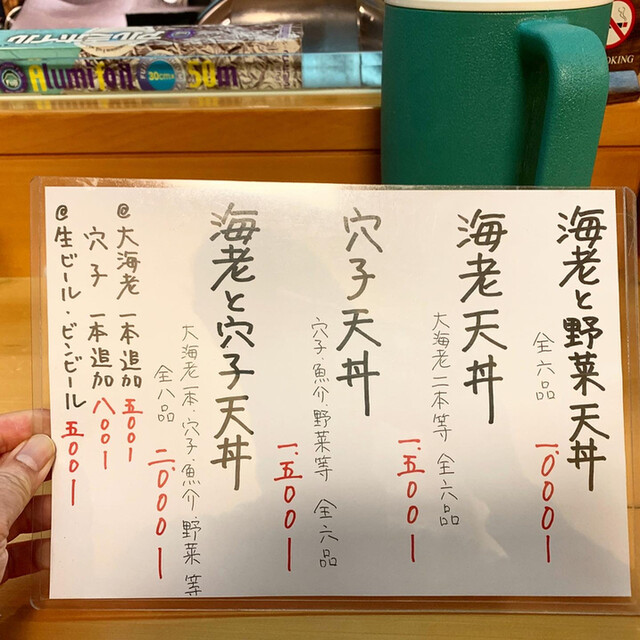 アルミホイル
ALUMIFOIL
30cm×50m
OKING
海老と野菜天丼
全六品
一、〇〇〇ー
海老天丼
大海老二本等 全六品
一、五〇〇ー
穴子天丼
穴子・魚介・野菜等 全六品
一、五〇〇ー
海老と穴子天丼
大海老一本・穴子・魚介・野菜等
全八品
二、〇〇〇ー
@大海老 一本追加 五〇〇ー
穴子 一本追加 八〇〇ー
@生ビール・ビンビール 五〇〇ー